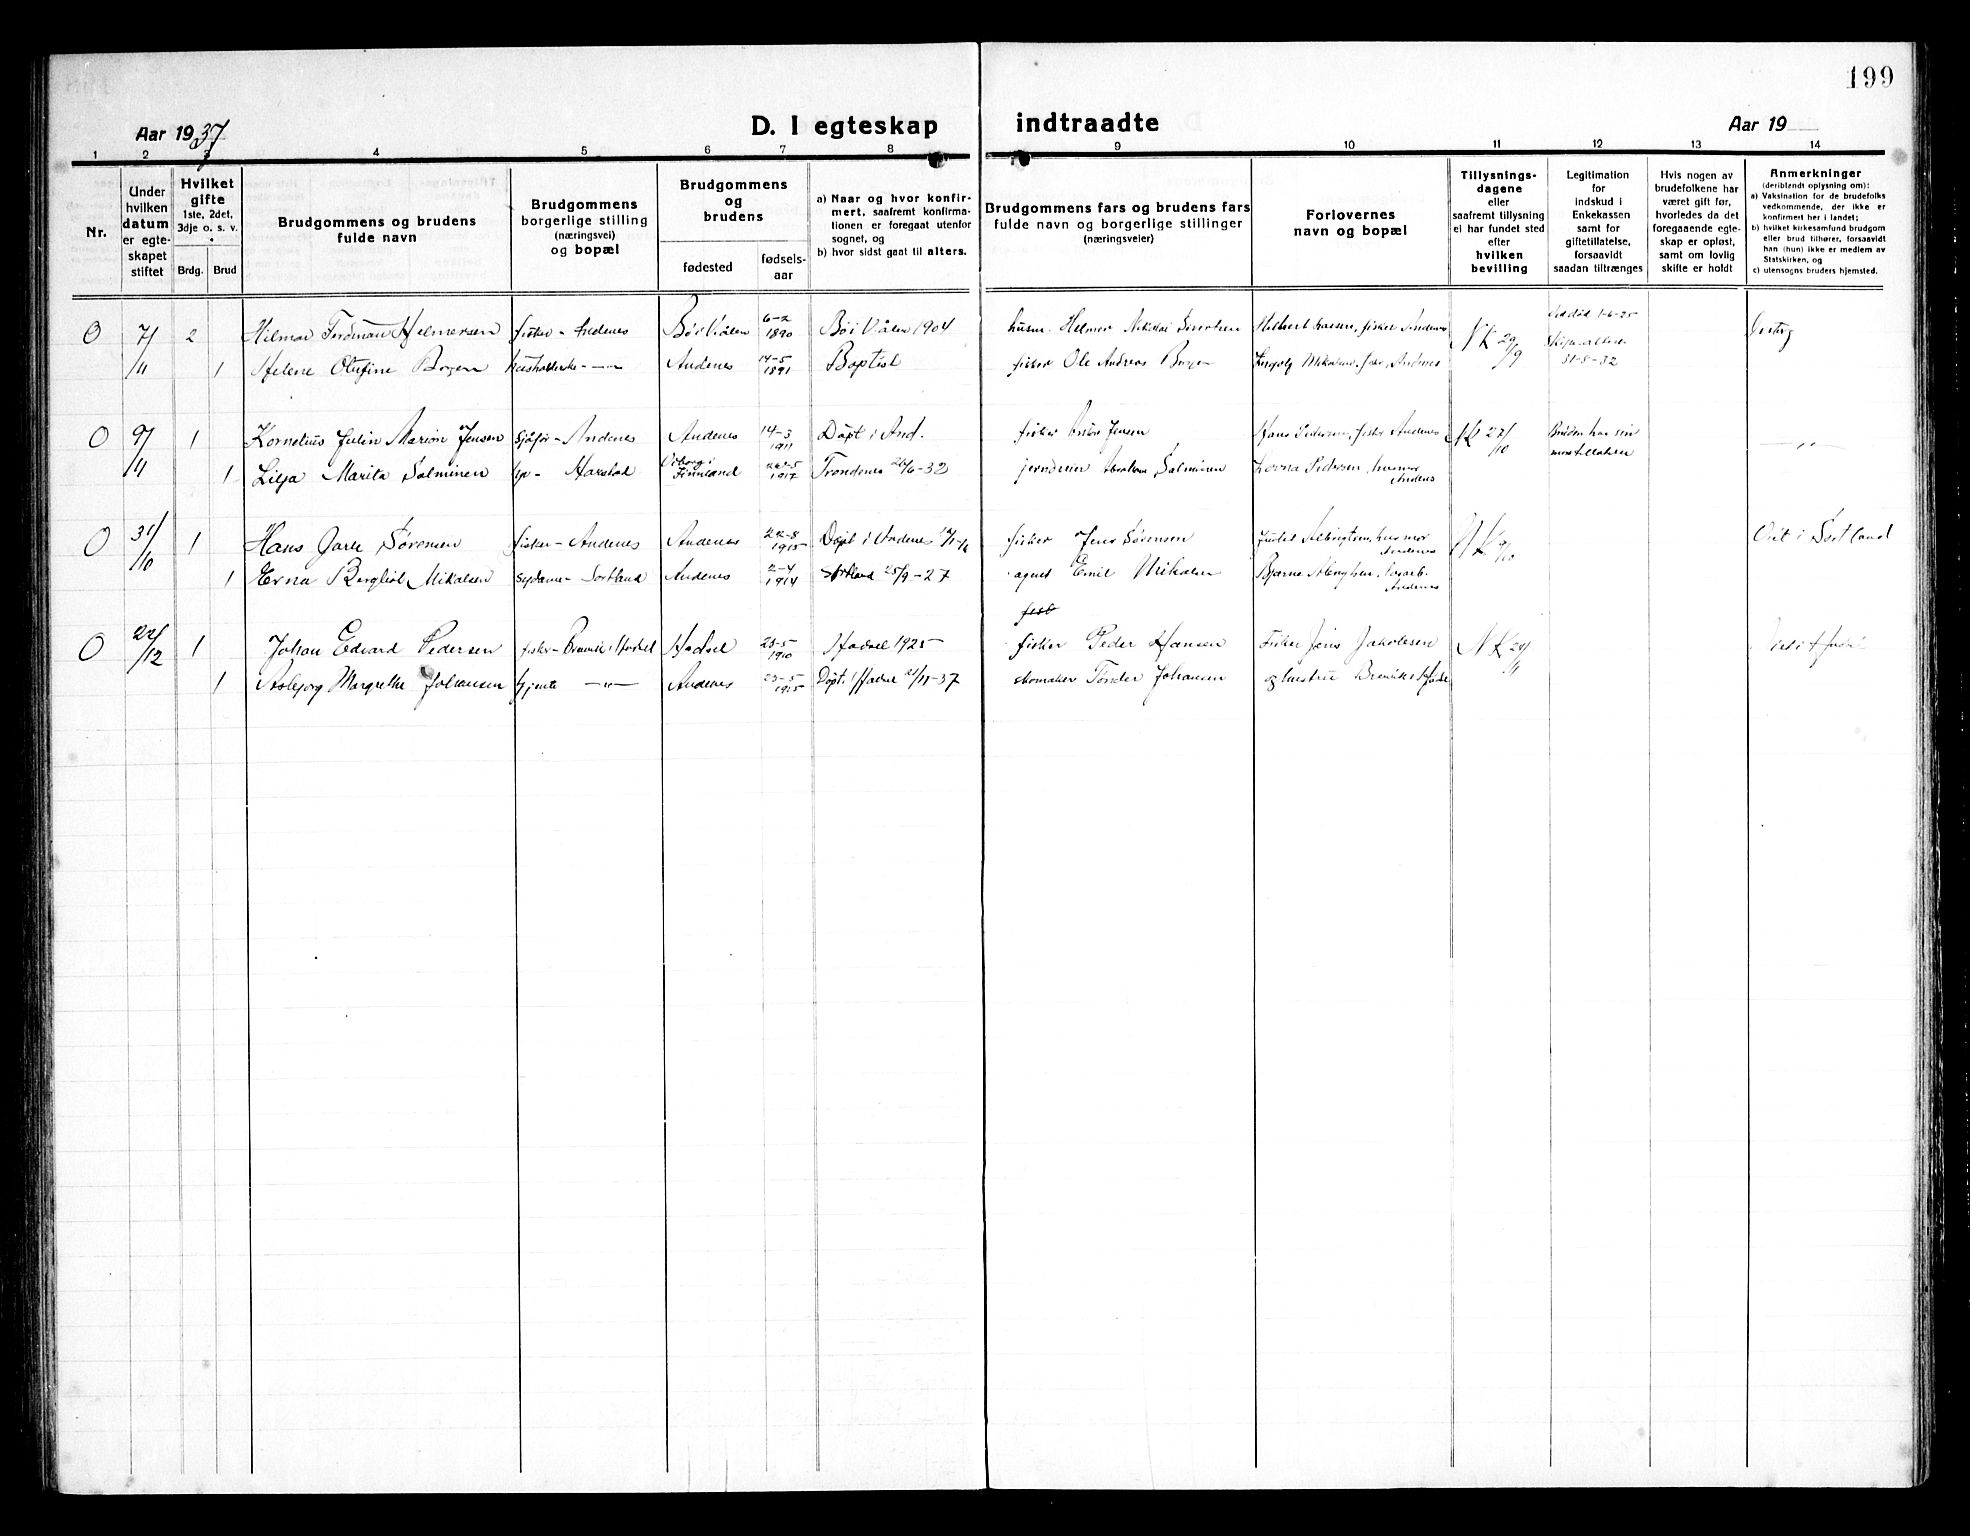 199
Aar 1937
D. I egteskap indtraadte
Aar 19
1 2 3 4 5 6 7 8 9 10 11 12 13 14
Nr.
Under
hvilken
datum
er egte-
skapet
stiftet
Hvilket
gifte
1ste, 2det,
3dje o. s. v.
Brdg. Brud
Brudgommens og brudens
fulde navn
Brudgommens
borgerlige stilling
(næringsvei)
og bopæl
Brudgommens
og
brudens
fødested
fødsels-
aar
a) Naar og hvor konfir-
mert, saafremt konfirma-
tionen er foregaat utenfor
sognet, og
b) hvor sidst gaat til alters.
Brudgommens fars og brudens fars
fulde navn og borgerlige stillinger
(næringsveier)
Forlovernes
navn og bopæl
Tillysnings-
dagene
eller
saafremt tillysning
ei har fundet sted
efter
hvilken
bevilling
Legitimation
for
indskud i
Enkekassen
samt for
giftetillatelse,
forsaavidt
saadan tiltrænges
Hvis nogen av
brudefolkene har
været gift før,
hvorledes da det
foregaaende egte-
skap er opløst,
samt om lovlig
skifte er holdt
Anmerkninger
(deriblandt oplysning om):
a) Vaksination for de brudefolks
vedkommende, der ikke er
konfirmert her i landet;
b) hvilket kirkesamfund brudgom
eller brud tilhører, forsaavidt
han (hun) ikke er medlem av
Statskirken, og
c) utensogns bruders hjemsted.
0 7/11 2 Hilmar Ferdinan Helmersen fisker - Andenes Bø i V.ålen 6-2 1890 Bø i V.ålen 1904 husm. Helmer Nikolai fisker Andenes NK 29/9 1-6-25
1 Helene Olufine Bogen husholderske - " - Andenes 14-5 1891 Baptist fisker Ole Andreas Bogen Andenes 31-8-32
0 9/11 1 Kornelius Julin Marion Jensen sjåfør - Andenes Andenes 14-3 1911 Døpt i And. fisker Jensen Hans Pedersen, fisker Andenes NK 27/10 Bruden har sin
1 Lilja Marita Salminen Harstad Viborg i Finnland 1917 Trondenes 26/6-32 Salminen Lovna Pedersen, husmor Andenes mors tillatelse
- " -
0 31/10 1 Hans Jarle Sørensen fisker - Andenes Andenes 22-8 1915 Døpt i Andenes fisker Jens Sørensen Albrigtsen, husmor Andenes NK 9/10 Viet i Sortland
1 Erna Bergliot Mikalsen sydame - Sortland Andenes 2-4 1914 Sortland 25/9-27 agent Emil Mikalsen Bjarne Andenes
0 22/12 1 Johan Edvard Pedersen fisker - Bremnes i Hadsel Hadsel 23-5 1910 Hadsel 1925 fisker Peder Hansen Fisker Jens Jakobsen NK 29/11 Viet i Hadsel
1 Asbjørg Margrethe Johansen hjemme - " - Andenes 23-5 1915 Døpt i Hadsel 21/11-37 skomaker Tønder Johansen og hustru